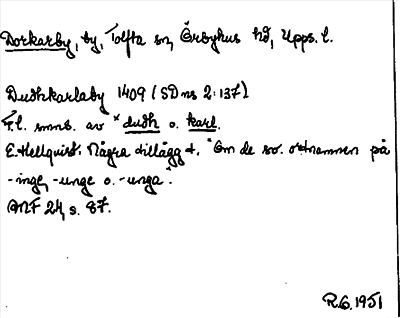 Dorkarby, by, Tolfta sn, Örbyhus hd, Upps. l.
Dudhkarlaby 1409 (SD ns 2:137)
F.l. smns. av *dudh o. karl.
E. Hellquist. Några tillägg t. "Om de sv. ortnamnen på
-inge, -unge o. -unga".
ANF 24, s. 87.
R.G. 1951